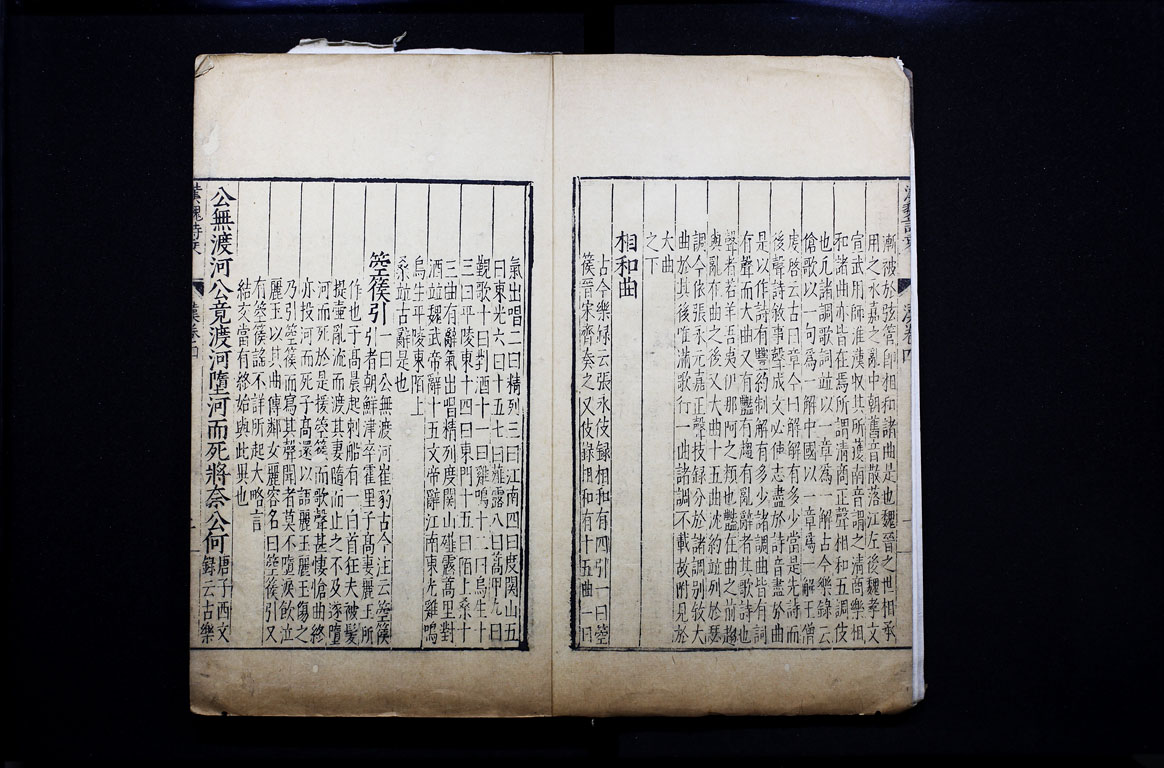 漢魏詩乘
漢卷四
漸被於弦管即相和諸曲是也魏晉之世相承
用之永嘉之亂中朝舊音散落江左後魏孝文
宣武用師淮漢收其所獲南音謂之清商樂相
和諸曲亦皆在焉所謂清商正聲相和五調伎
也凡諸調歌詞竝以一章為一解古今樂錄云
傖歌以一句為一解中國以一章為一解王僧
虔啓云古曰章今曰解解有多少當是先詩而
後聲詩敘事聲成文必使志盡於詩音盡於曲
是以作詩有豐約制解有多少諸調曲皆有詞
有聲而大曲又有豔有趨有亂辭者其歌詩也
聲者若羊吾夷伊那阿之類也豔在曲之前趨
與亂在曲之後又大曲十五曲沈約竝列於瑟
調今依張永元嘉正聲技録分於諸調別敘大
曲於其後唯滿歌行一曲諸調不載故附見於
大曲
之下
相和曲
古今樂録云張永伎録相和有四引一曰箜
篌晉宋齊奏之又伎録相和有十五曲一曰
氣出唱二曰精列三曰江南四曰度関山五
曰東光六曰十五七曰薤露八曰蒿里九曰
觀歌十曰對酒十一曰雞鳴十二曰烏生十
三曰平陵東十四曰東門十五曰陌上桑十
三曲有辭氣出唱精列度関山薤露蒿里對
酒竝魏武帝辭十五文帝辭江南東光雞鳴
烏生平陵東陌上
桑竝古辭是也
箜篌引 一曰公無渡河崔豹古今注云箜篌
引者朝鮮津卒霍里子髙妻麗玉所
作也子髙晨起刺船有一白首狂夫被髮
提壷亂流而渡其妻隨而止之不及遂墮
河而死於是援箜篌而歌聲甚悽愴曲終
亦投河而死子髙還以語麗玉麗玉傷之
乃引箜篌而寫其聲聞者莫不墮淚飲泣
麗玉以其曲傳鄰女麗容名曰箜篌引又
有箜篌謠不詳所起大略言
結交當有終始與此異也
公無渡河公竟渡河墮河而死將奈公何 唐子西文
録云古樂
漢魏詩乘
漢卷四